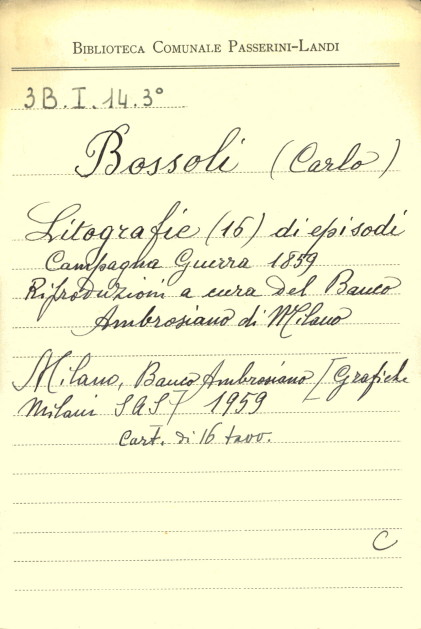 BIBLIOTECA COMUNALE PASSERINI-LANDI
3B.I.14.3°
Bossoli (Carlo)
Litografie (16) di episodi
Campagna Guerra 1859
Riproduzioni a cura del Banco
Ambrosiano di Milano
Milano, Banco Ambrosiano [Grafiche
Milani SAS] 1959
Cart. di 16 tavv.
C